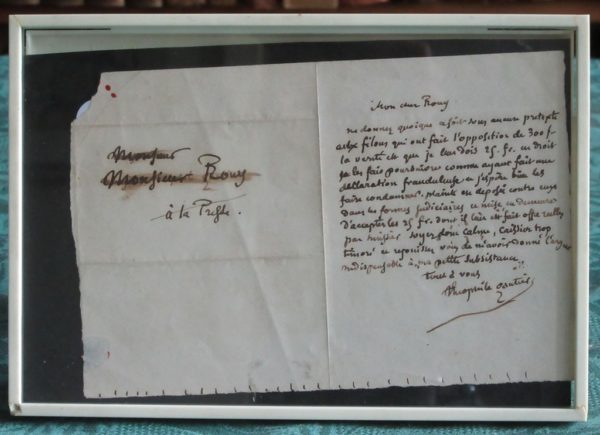 Monsieur
Monsieur Rouy
à la Presse.
Mon cher Rouy
ne donnez quoique ce soit sous aucun pretexte
aux filous qui ont fait l'opposition de 300 f.
la verité est que je leur dois 25 fr. on doit
les faire poursuivre comme ayant fait une
déclaration frauduleuse et j'espère bien les
faire condamner. plainte en deposé contre eux
dans les formes judiciaires et mise en demeure
d'accepter les 25 fr. dont il leur est fait offre réelle
par huissier soyez donc calme, caissier trop
timoré et rejouissez vous de m'avoir donné l'argent
indispensable à ma petite subsistance.
tout à vous
Théophile Gautier